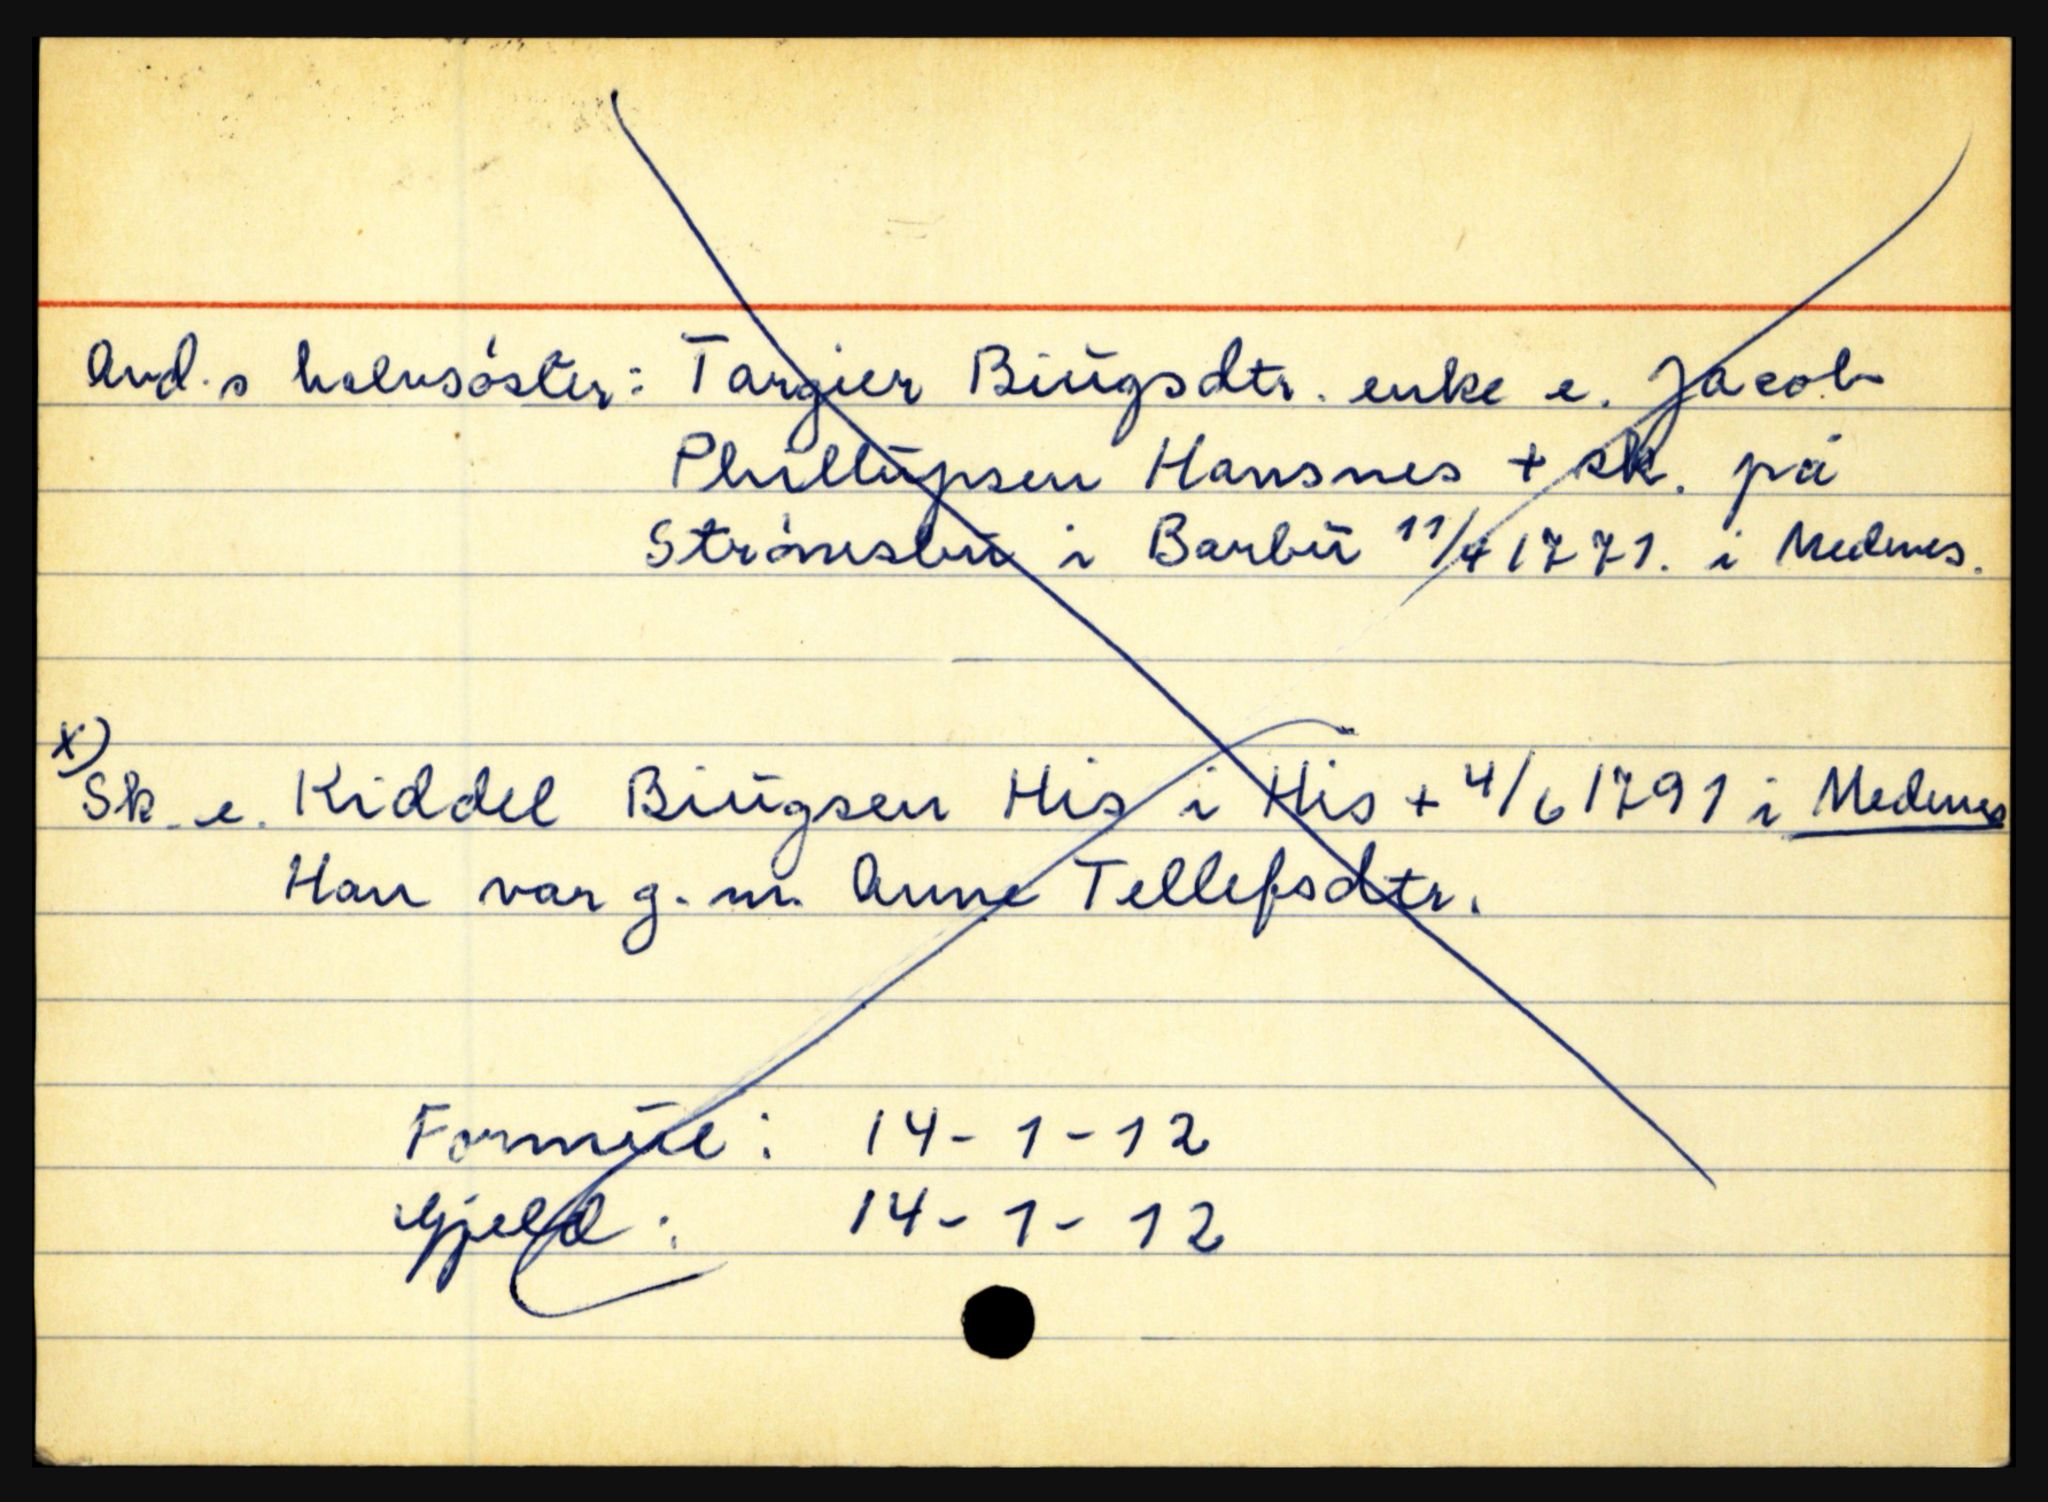 And.s halvsöster: Targier Biügsdtr. enke e. Jacob
Phillüpsen Hansnes + sk. på
Strömsbü i Barbü 11/4 1771. i Nednes.
x)
Sk. e. Kiddel Biügsen His i His + 4/6 1791 i Nednes
Han var g. m. Anne Tellefsdtr.
Formüe: 14-1-12
Gjeld: 14-1-12